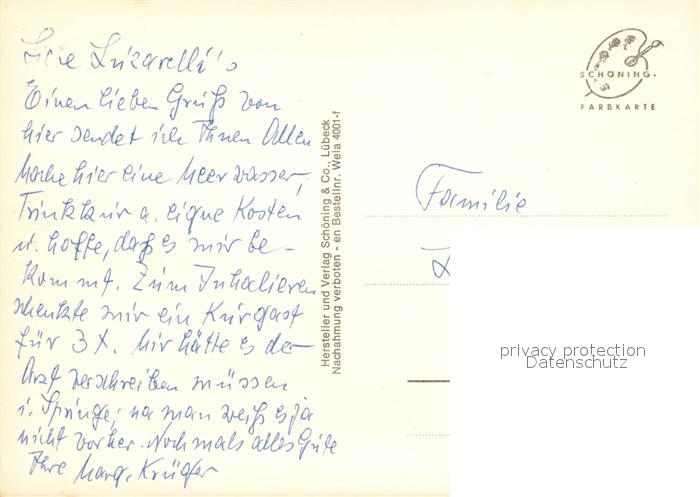 Liebe Luzarelli's
Einen lieben Gruß von
hier sendet ich Ihnen Allen
Mache hier eine Meerwasser,
Trinkkur a. eigne Kosten
u. hoffe, daß es mir be-
kommt. Zum Inhalieren
schenkte mir ein Kurgast
für 3 X. Mir hätte es der
Arzt verschreiben müssen
i. Springe; na man weiß es ja
nicht vorher. Nochmals alles Gute
Ihre Marg. Krüger
Hersteller und Verlag Schöning & Co., Lübeck
Nachahmung verboten - en Bestellnr. Wela 4001-f
SCHÖNING·
FARBKARTE
Familie
privacy protection
Datenschutz